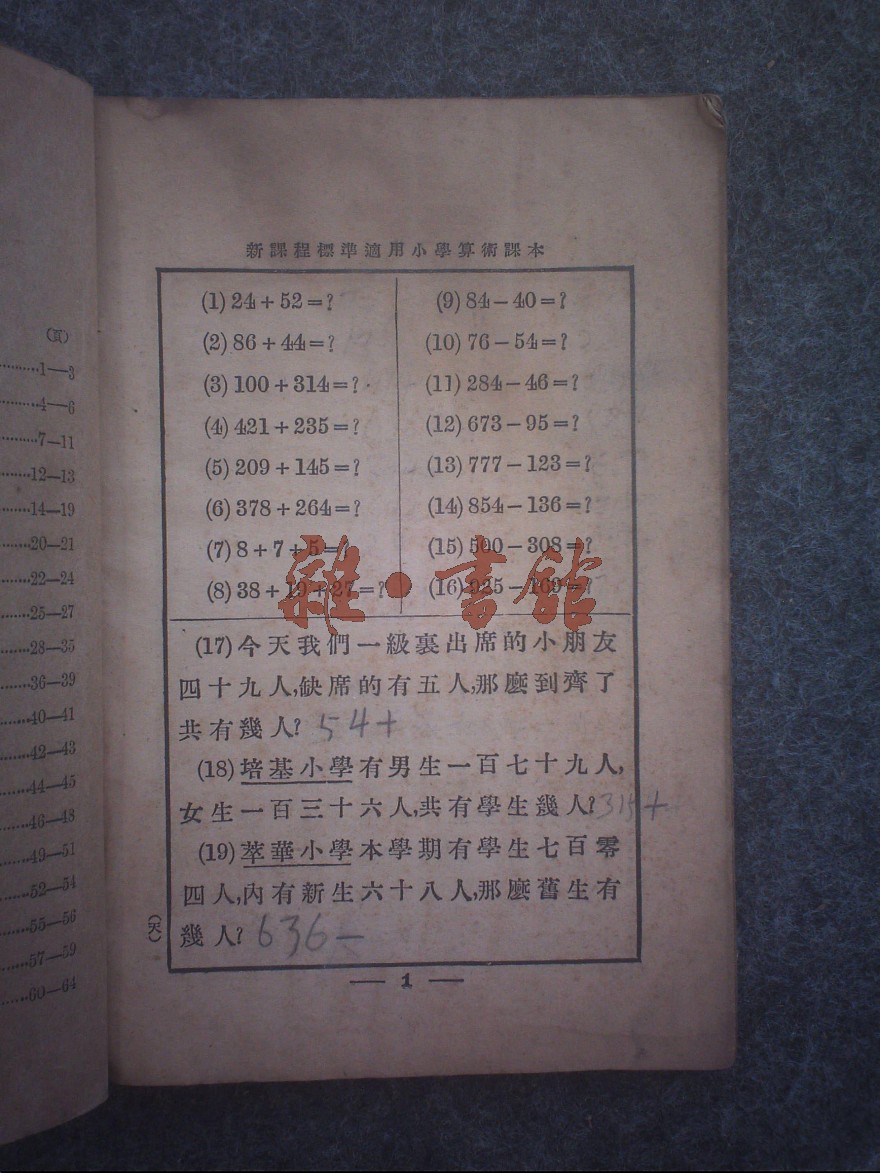 新課程標準適用小學算術課本
(1) 24+52=?
(2) 86+44=?
(3) 100+314=?
(4) 421+235=?
(5) 209+145=?
(6) 378+264=?
(7) 8+7+5=?
(8) 38+19+27=?
(9) 84-40=?
(10) 76-54=?
(11) 284-46=?
(12) 673-95=?
(13) 777-123=?
(14) 854-136=?
(15) 500-308=?
(16) 925-169=?
雜·書館
(17) 今天我們一級裏出席的小朋友
四十九人,缺席的有五人,那麼到齊了
共有幾人? 54+
(18) 培基小學有男生一百七十九人,
女生一百三十六人,共有學生幾人? 315+
(19) 萃華小學本學期有學生七百零
四人,內有新生六十八人,那麼舊生有
幾人? 636-
(天)
— 1 —
(頁)
………1—3
………4—6
………7—11
………12—13
………14—19
………20—21
………22—24
………25—27
………28—35
………36—39
………40—41
………42—43
………44—45
………46—48
………49—51
………52—54
………55—56
………57—59
………60—64